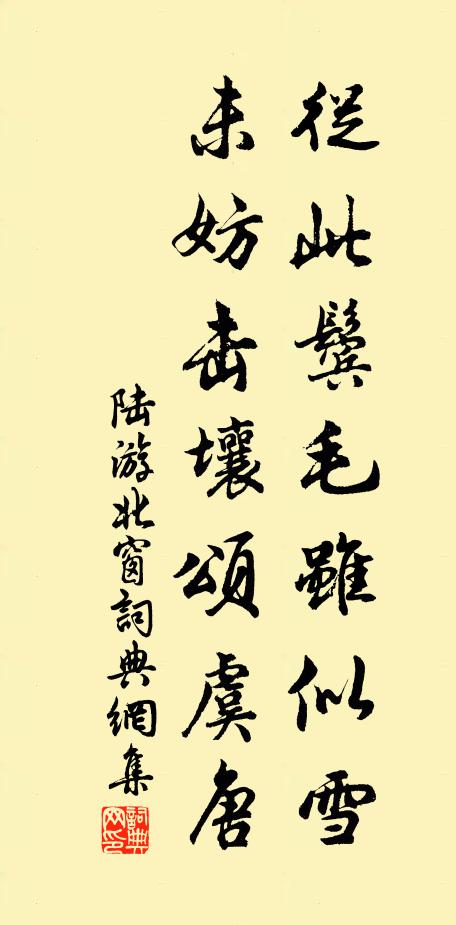 從此鬢毛雖似雪
未妨击壤頌虞唐
陆游北窗詞典網集
詞典
网印